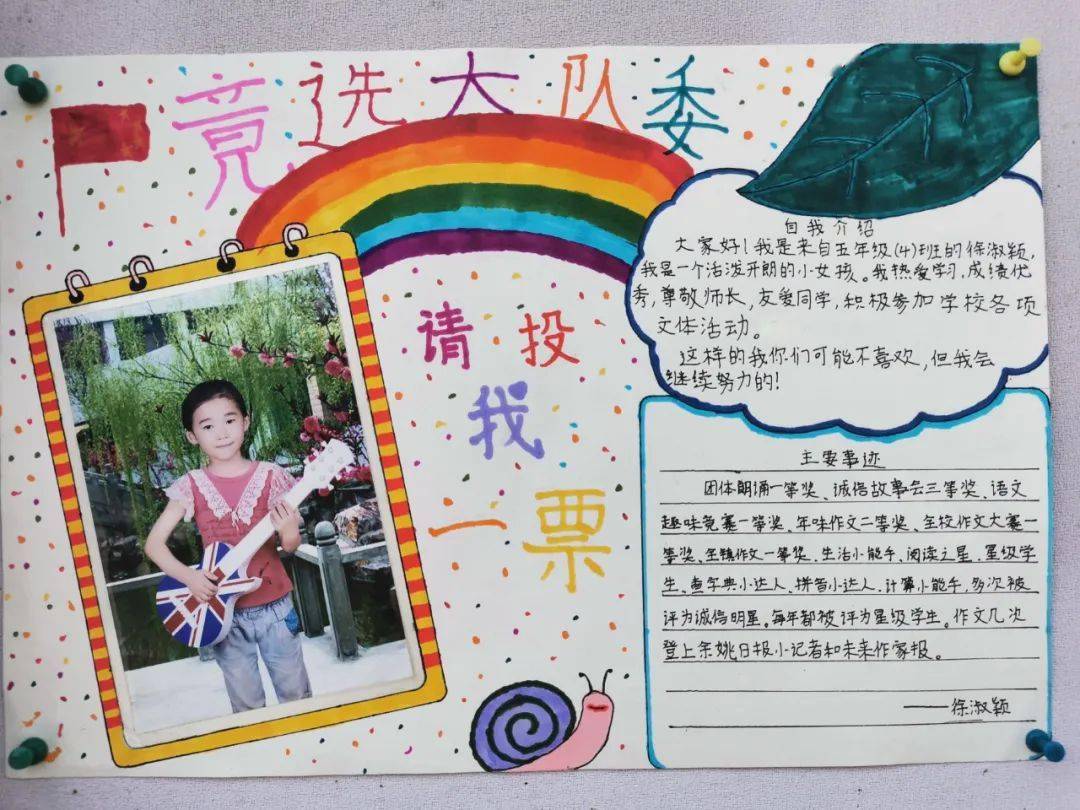 竟选大队委
请投
我
一票
自我介绍
大家好！我是来自五年级(4)班的徐淑颖，
我是一个活泼开朗的小女孩。我热爱学习，成绩优
秀，尊敬师长，友爱同学，积极参加学校各项
文体活动。
这样的我你们可能不喜欢，但我会
继续努力的！
主要事迹
团体朗诵一等奖、诚信故事会三等奖、语文
趣味竞赛一等奖、年味作文二等奖、全校作文大赛一
等奖、全镇作文一等奖、生活小能手、阅读之星、星级学
生、查字典小达人、拼音小达人、计算小能手，多次被
评为诚信明星。每年都被评为星级学生。作文几次
登上余姚日报小记者和未来作家报。
——徐淑颖